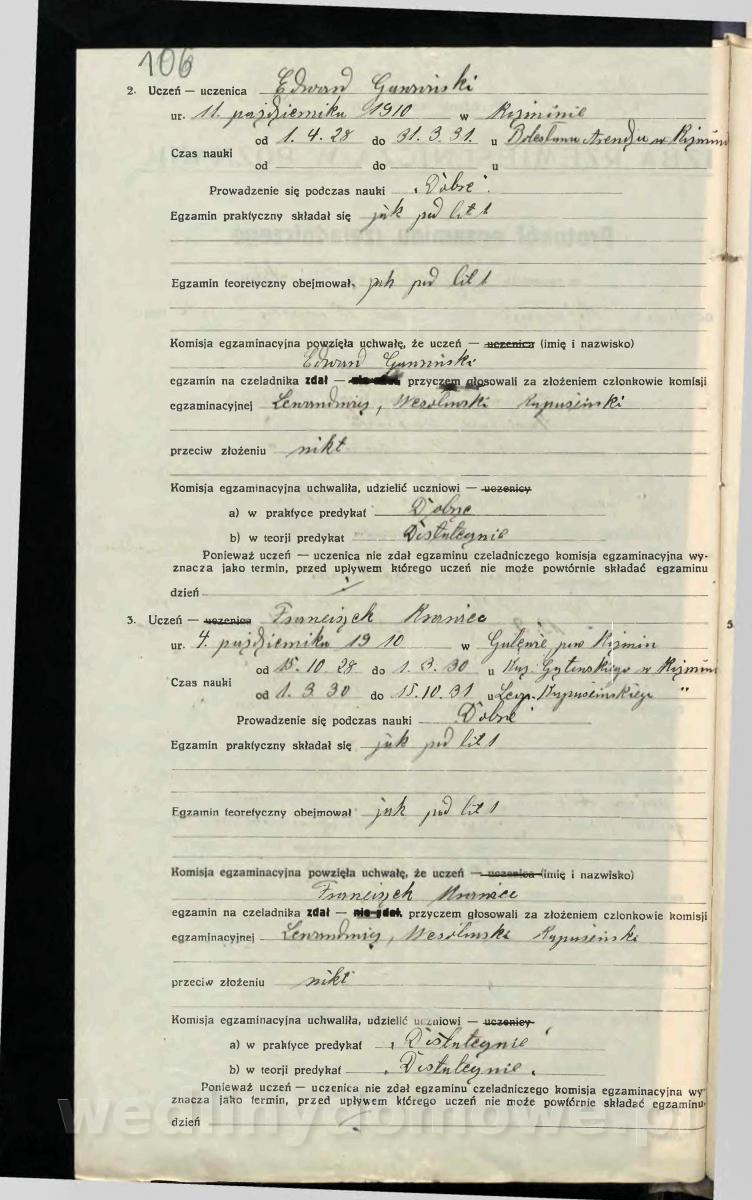 106
2. Uczeń — uczenica Edward
ur. 11. października 1910 w
od 1. 4. 28 do 31. 3. 31. u w
Czas nauki
od do u
Prowadzenie się podczas nauki „Dobre".
Egzamin praktyczny składał się jak pod lit 1
Egzamin teoretyczny obejmował jak pod lit 1
Komisja egzaminacyjna powzięła uchwałę, że uczeń — uczenica (imię i nazwisko)
Edward
egzamin na czeladnika zdał — nie zdał, przyczem głosowali za złożeniem członkowie komisji
egzaminacyjnej
przeciw złożeniu nikt
Komisja egzaminacyjna uchwaliła, udzielić uczniowi — uczenicy
a) w praktyce predykat Dobrze
b) w teorji predykat Dostatecznie
Ponieważ uczeń — uczenica nie zdał egzaminu czeladniczego komisja egzaminacyjna wy-
znacza jako termin, przed upływem którego uczeń nie może powtórnie składać egzaminu
dzień
3. Uczeń — uczenica Franciszek
ur. 4. października 1910 w pow
od 15. 10. 28 do 1. 3. 30 u w
Czas nauki
od 1. 3. 30 do 15. 10. 31 u "
Prowadzenie się podczas nauki „Dobre"
Egzamin praktyczny składał się jak pod lit 1
Egzamin teoretyczny obejmował jak pod lit 1
Komisja egzaminacyjna powzięła uchwałę, że uczeń — uczenica (imię i nazwisko)
Franciszek
egzamin na czeladnika zdał — nie zdał, przyczem głosowali za złożeniem członkowie komisji
egzaminacyjnej
przeciw złożeniu nikt
Komisja egzaminacyjna uchwaliła, udzielić uczniowi — uczenicy
a) w praktyce predykat „Dostatecznie"
b) w teorji predykat „Dostatecznie".
Ponieważ uczeń — uczenica nie zdał egzaminu czeladniczego komisja egzaminacyjna wy-
znacza jako termin, przed upływem którego uczeń nie może powtórnie składać egzaminu
dzień
wedlinydomowe.pl